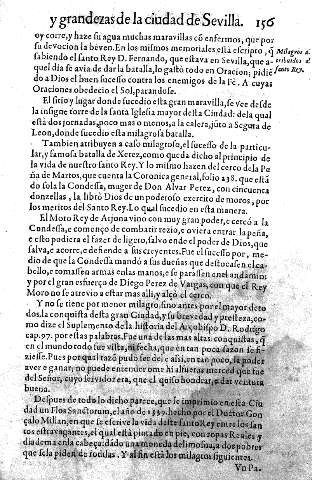 y grandezas de la ciudad de Sevilla. 156
oy corre, y haze su agua muchas maravillas cõ enfermos, que por
su devocion la beven. En los mismos memoriales està escripto, q̃
sabiendo el santo Rey D. Fernando, que estava en Sevilla, que a-
quel dia se avia de dar la batalla, lo gastò todo en Oracion; pidiẽ
do a Dios el buen sucesso contra los enemigos de la Fè. A cuyas
Oraciones obedecio el Sol, parandose.
Milagros a-
tribuidos al
santo Rey.
El sitio y lugar donde sucedio esta gran maravilla, se vee desde
la insigne torre de la santa Iglesia mayor desta Ciudad: de la qual
està dos jornadas, poco mas o menos, a la calera, jũto a Segura de
Leon, donde sucedio esta milagrosa batalla.
Tambien atribuyen a caso milagroso, el sucesso de la particu-
lar, y famosa batalla de Xerez, como queda dicho al principio de
la vida de nuestro santo Rey. Y lo mismo hazen del cerco de la Pe
ña de Martos, que cuenta la Coronica general, folio 238. que està
do sola la Condessa, muger de Don Alvar Perez, con cincuenta
donzellas, la librò Dios de un poderoso exercito de moros, por
los meritos del Santo Rey. Lo qual sucedio en esta manera.
El Moro Rey de Arjona vino con muy gran poder, e cercò a la
Condessa, e començo de combatir rezio, e oviera entrar la peña,
e esto pudiera el fazer de ligero, salvo ende el poder de Dios, que
salva, e acorre, e defiende a sus creyentes. Fue el sucesso por, me-
dio de que la Condessa mandò a sus dueñas que destocassen el ca-
bello, e tomassen armas en las manos, e se parassen en el andamio:
y por el gran esfuerço de Diego Perez de Vargas, con que el Rey
Moro no se atrevio a estar mas alli, y alçò el cerco.
Y no se tiene por menor milagro, sino antes por el mayor de to
dos, la conquista desta gran Ciudad, y su brevedad y presteza, co-
mo dize el Suplemento de la historia del Arçobispo D. Rodrigo
cap. 97. por estas palabras. Fue una de las mas altas conquistas, q̃
en el mundo todo fue vista, ni fecha, que en tan poca sazon se fi-
ziesse. Pues por qual razõ pudo ser desse assi, en tan poco, se poder
aver e ganar, no puede entender ome hi alfueras merced que fue
del Señor, cuyo servidor era, que el quiso hondrar, e dar ventura
buena.
Despues de todo lo dicho parece, que se imprimio en esta Ciu
dad un Flos Sanctorum, el año de 1539. hecho por el Doctor Gon
çalo Millan, en que se refiere la vida deste santo Rey entre los san
tos estravagantes, el qual està pintado en pie, con ropas Reales y
diadema en la cabeça: dado una moneda de limosna, a dos pobres
que se la piden de rodillas. Y al fin està los milagros siguientes.
Un Pa-